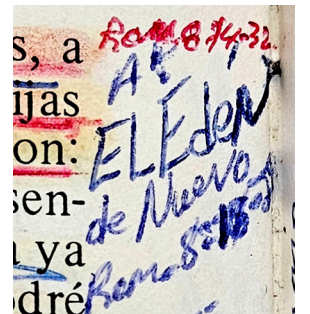 s, a
ijas
on:
sen-
a ya
odré
Rom. 8:14-32
A
EL Eden
de Nuevo
Rom. 8: